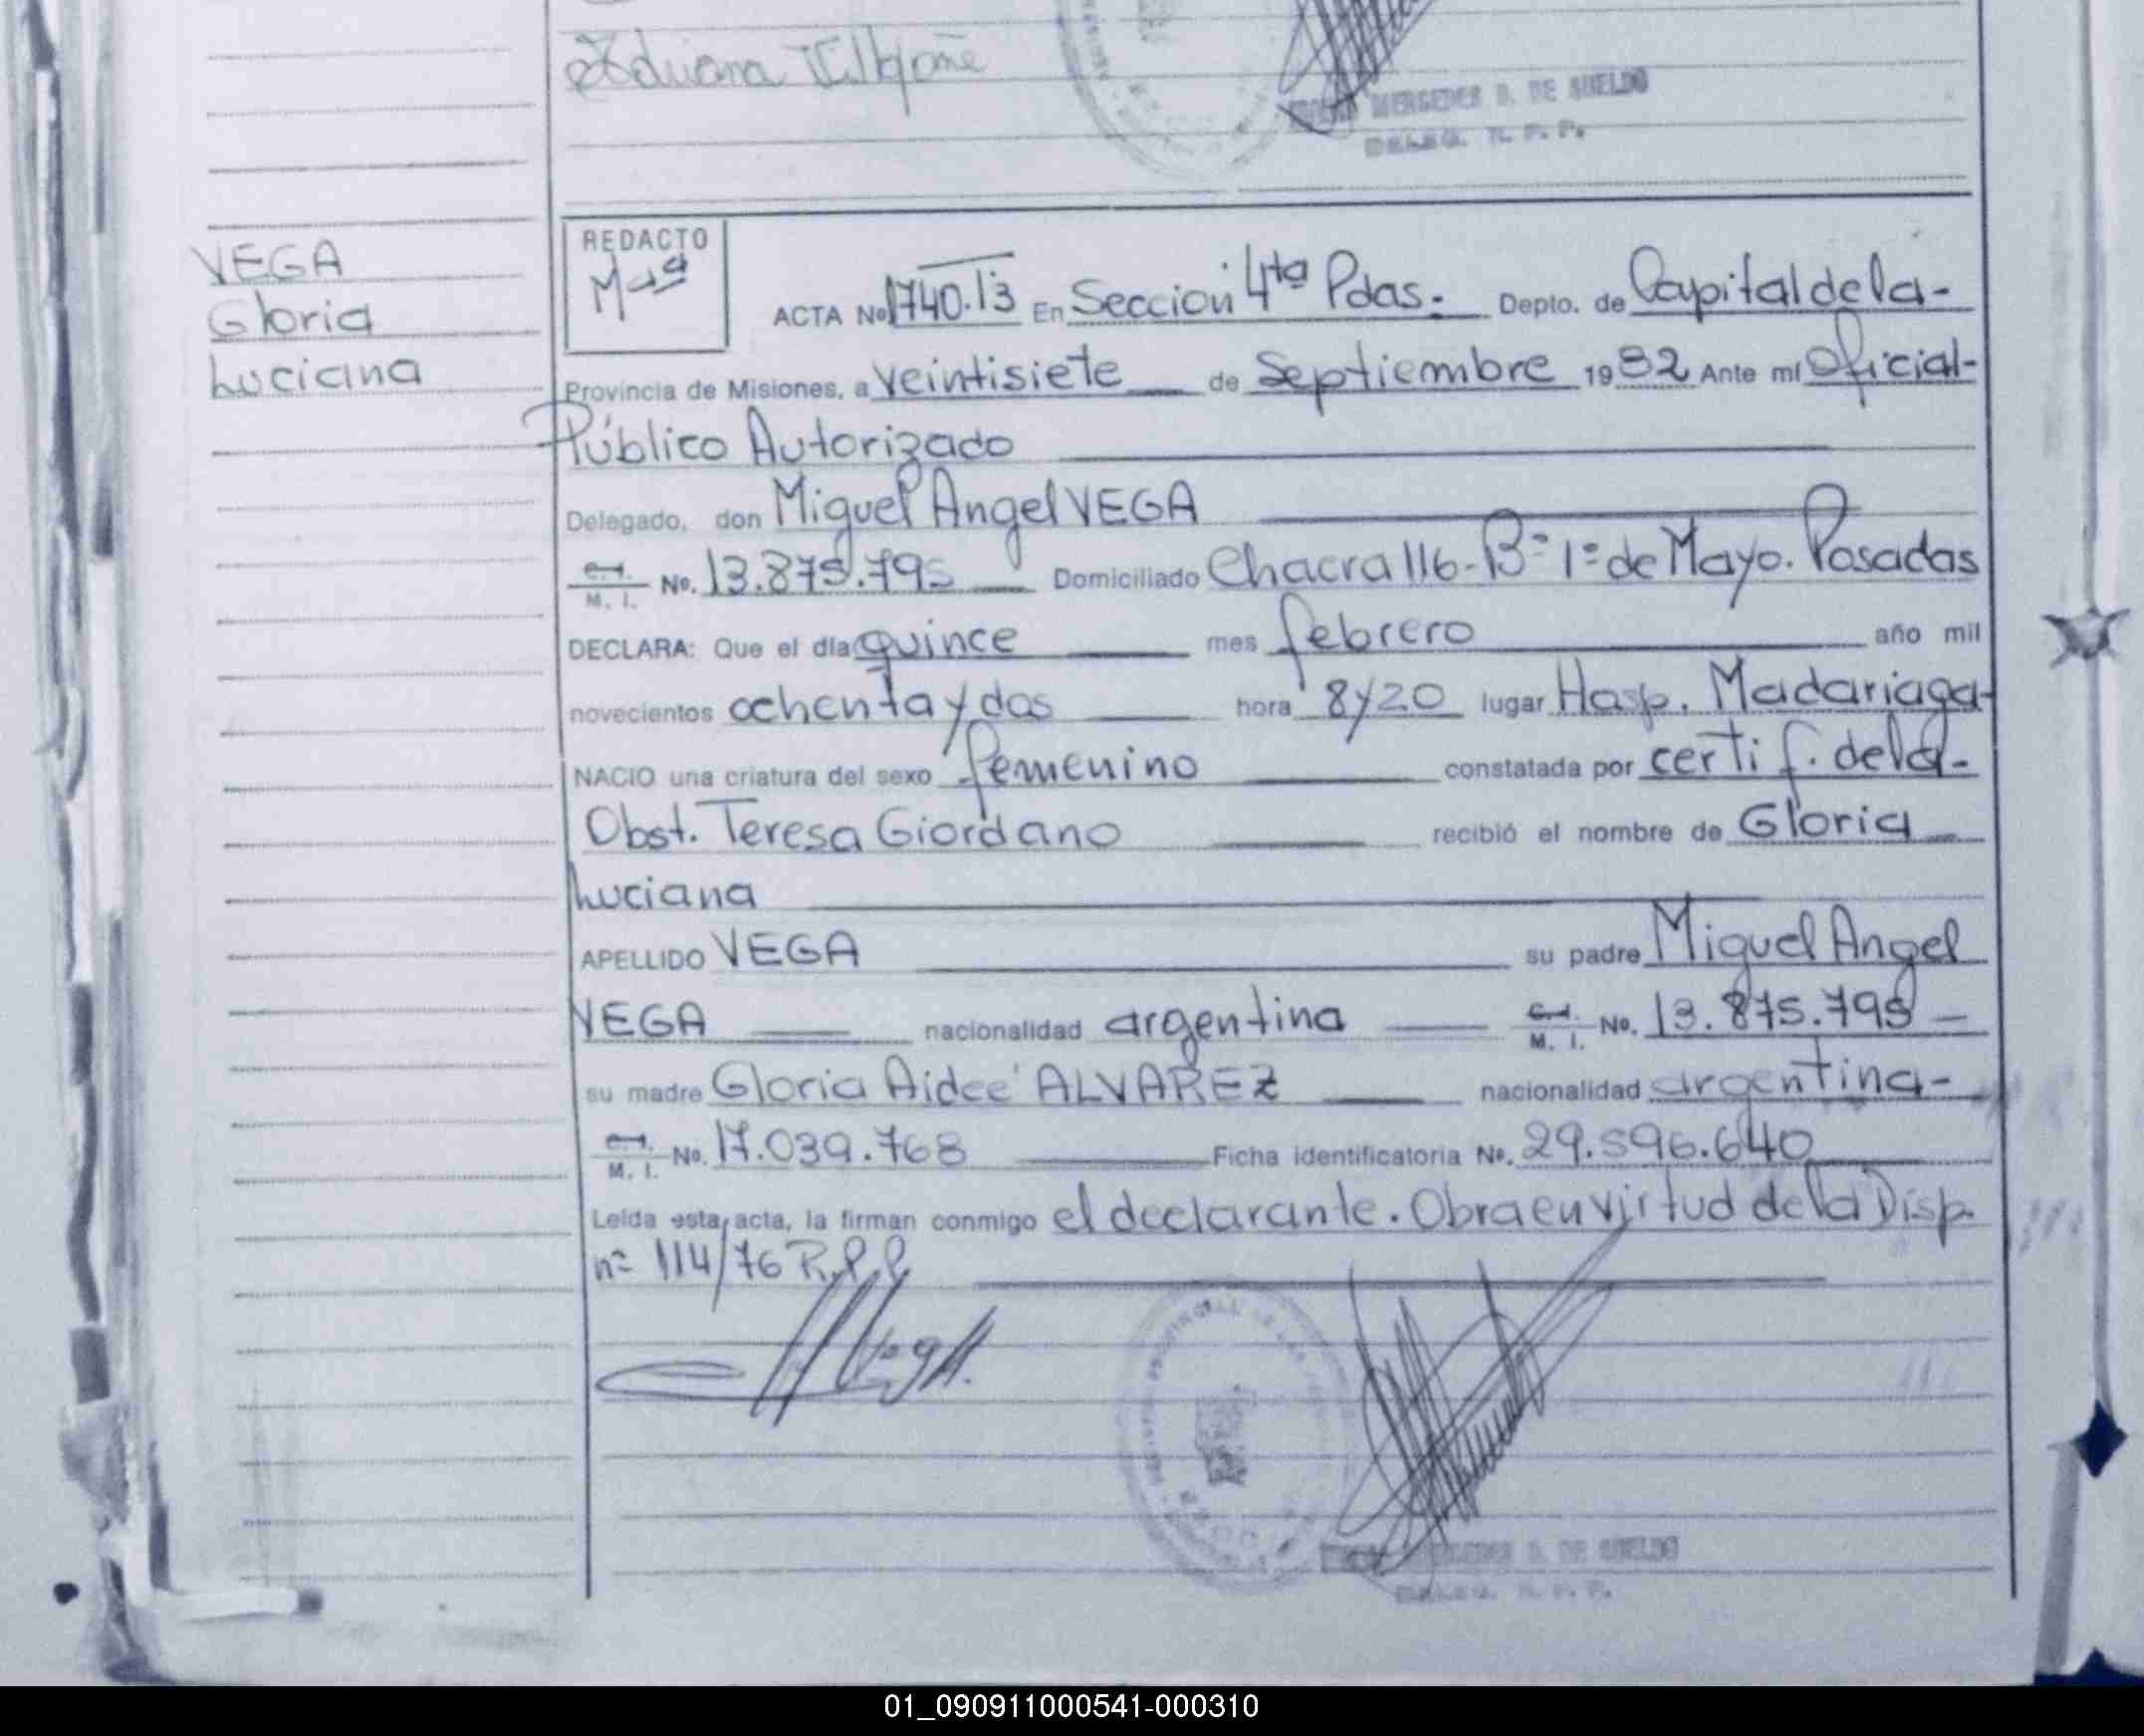 Adriana
MERCEDES D. DE SUELDO
DELEG. R. P. P.
VEGA
Gloria
Luciana
REDACTO
Mas
ACTA No 1740. En Sección 4ta Pdas. Depto. de Capital de la-
Provincia de Misiones, a veintisiete de Septiembre 1982 Ante mí Oficial-
Público Autorizado
Delegado, don Miguel Angel VEGA
C.I. M. I. No. 13.875.795 Domiciliado Chacra 116-Bº 1º de Mayo. Posadas
DECLARA: Que el día quince mes febrero año mil
novecientos ochenta y dos hora 8y20 lugar Hosp. Madariaga-
NACIO una criatura del sexo femenino constatada por certif. de la-
Obst. Teresa Giordano recibió el nombre de Gloria
Luciana
APELLIDO VEGA su padre Miguel Angel
VEGA nacionalidad argentina C.I. M. I. No. 13.875.795-
su madre Gloria Aidee' ALVAREZ nacionalidad argentina-
C.I. M. I. No. 17.039.768 Ficha identificatoria No. 29.596.640
Leída esta acta, la firman conmigo el declarante. Obra en virtud de la Disp.
nº 114/76 R.P.P.
MERCEDES D. DE SUELDO
DELEG. R. P. P.
01_090911000541-000310